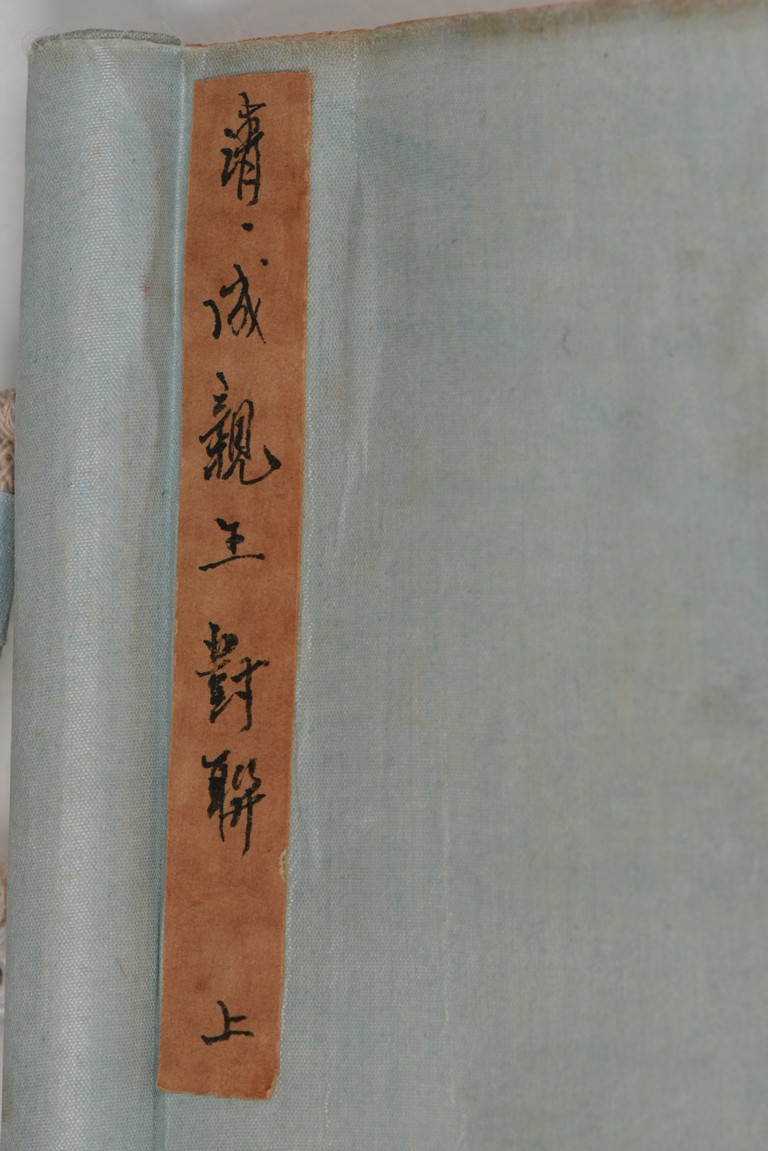 清、成親王對聯 上